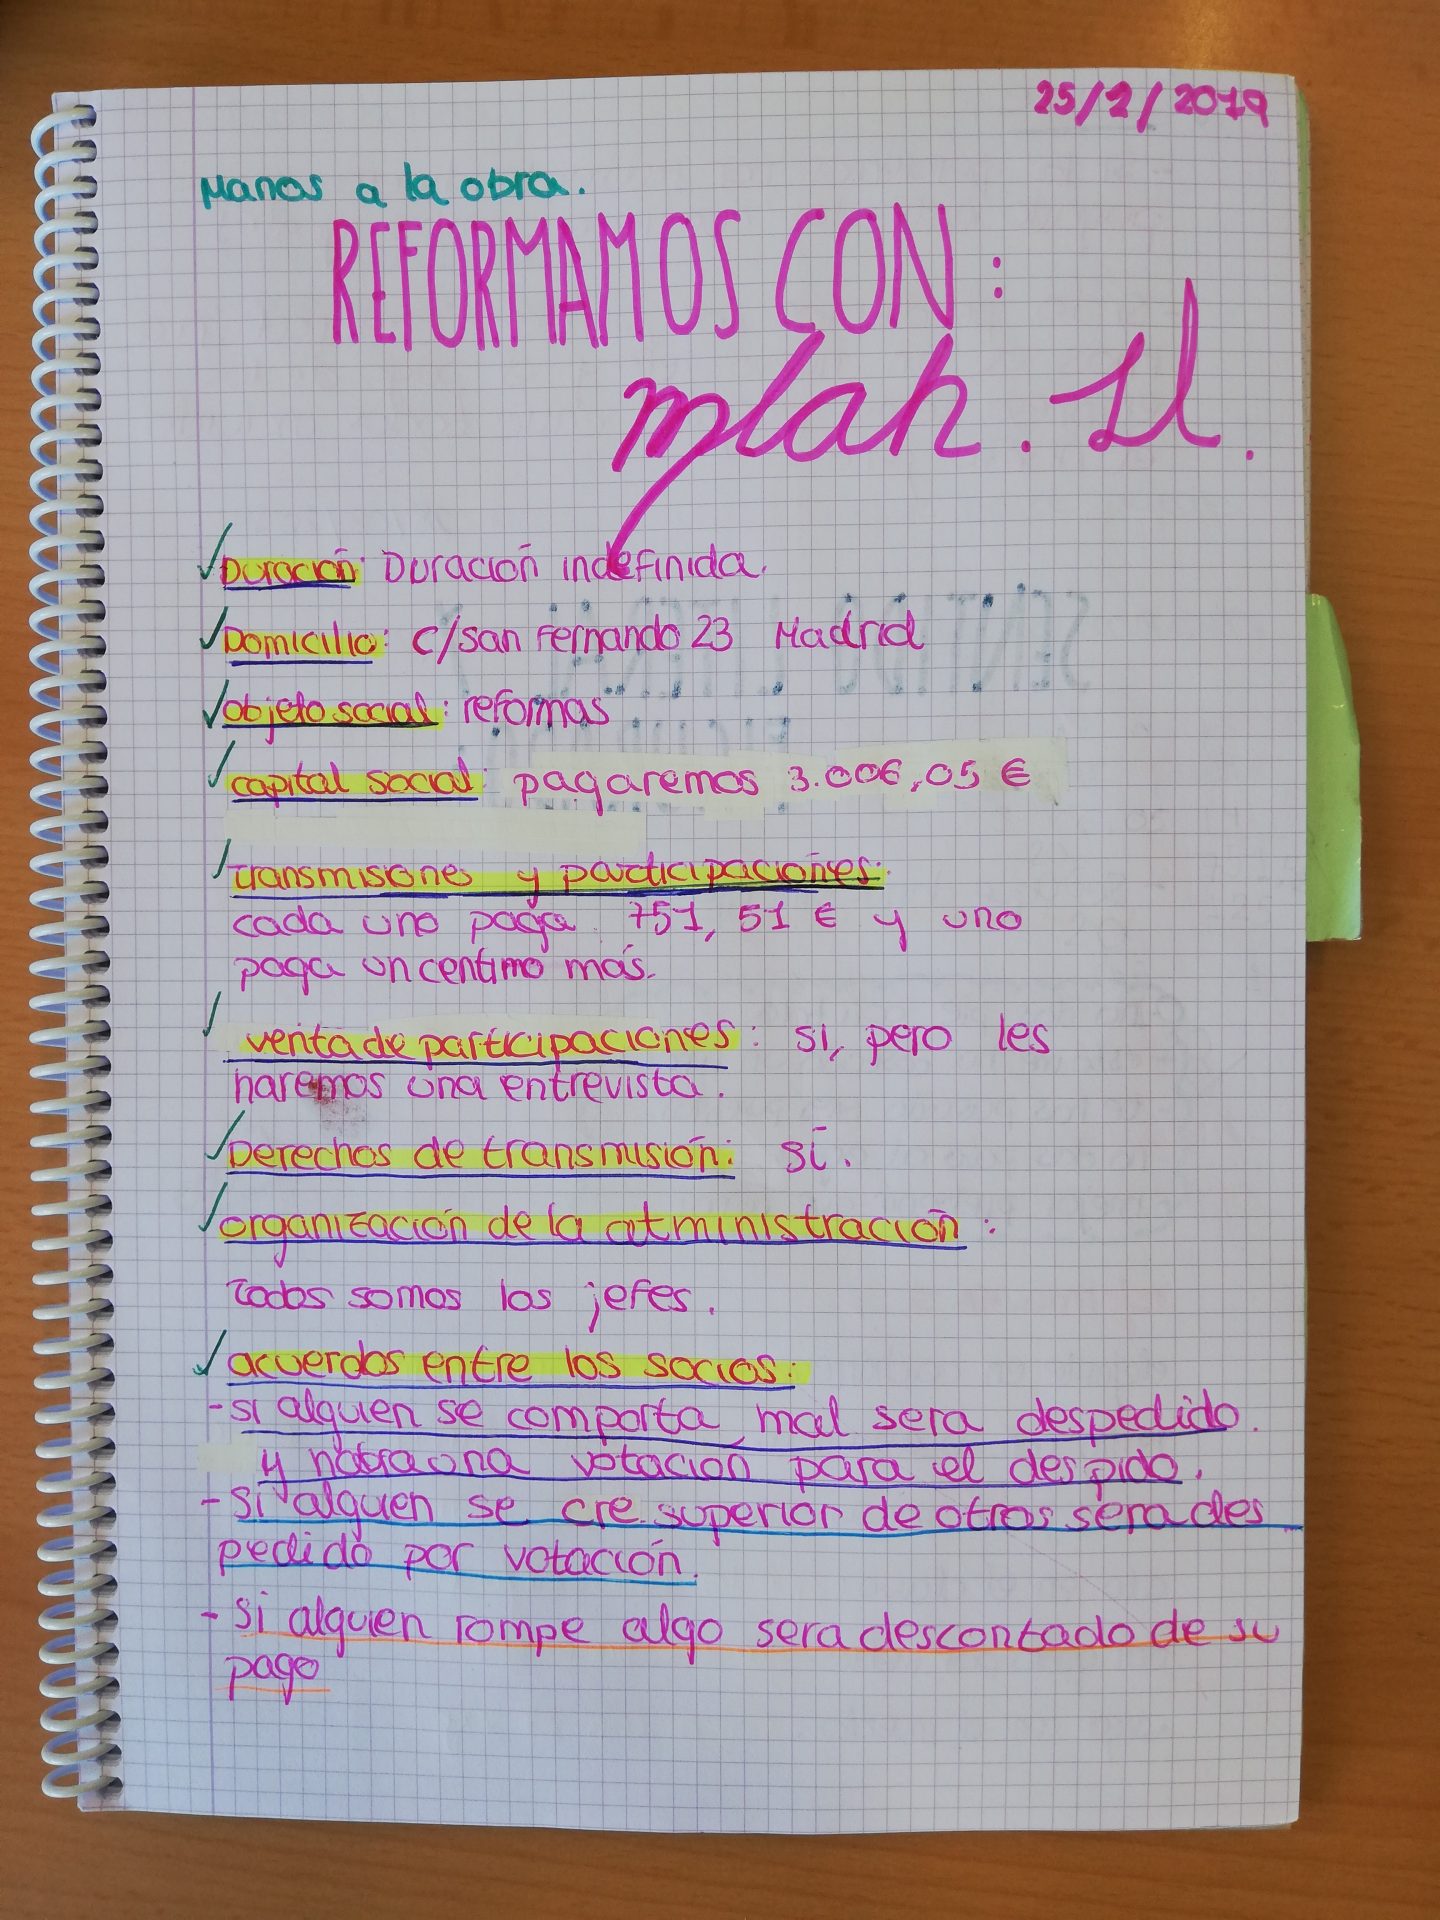 25/2/2019
Manos a la obra.
REFORMAMOS CON:
mlah. sl.
Duración: Duración indefinida.
Domicilio: c/san Fernando 23 Madrid
objeto social: reformas
capital social: pagaremos 3.006,05 €
transmisione y participaciones:
cada uno paga 751, 51 € y uno
paga un centimo más.
venta de participaciones: si, pero les
haremos una entrevista.
Derechos de transmisión: sí.
organización de la atministración:
todos somos los jefes.
acuerdos entre los socios:
- si alguien se comporta mal sera despedido.
y habra una votación para el despido.
- si alguien se cre superior de otros sera des
pedido por votación.
- si alguien rompe algo sera descontado de su
pago